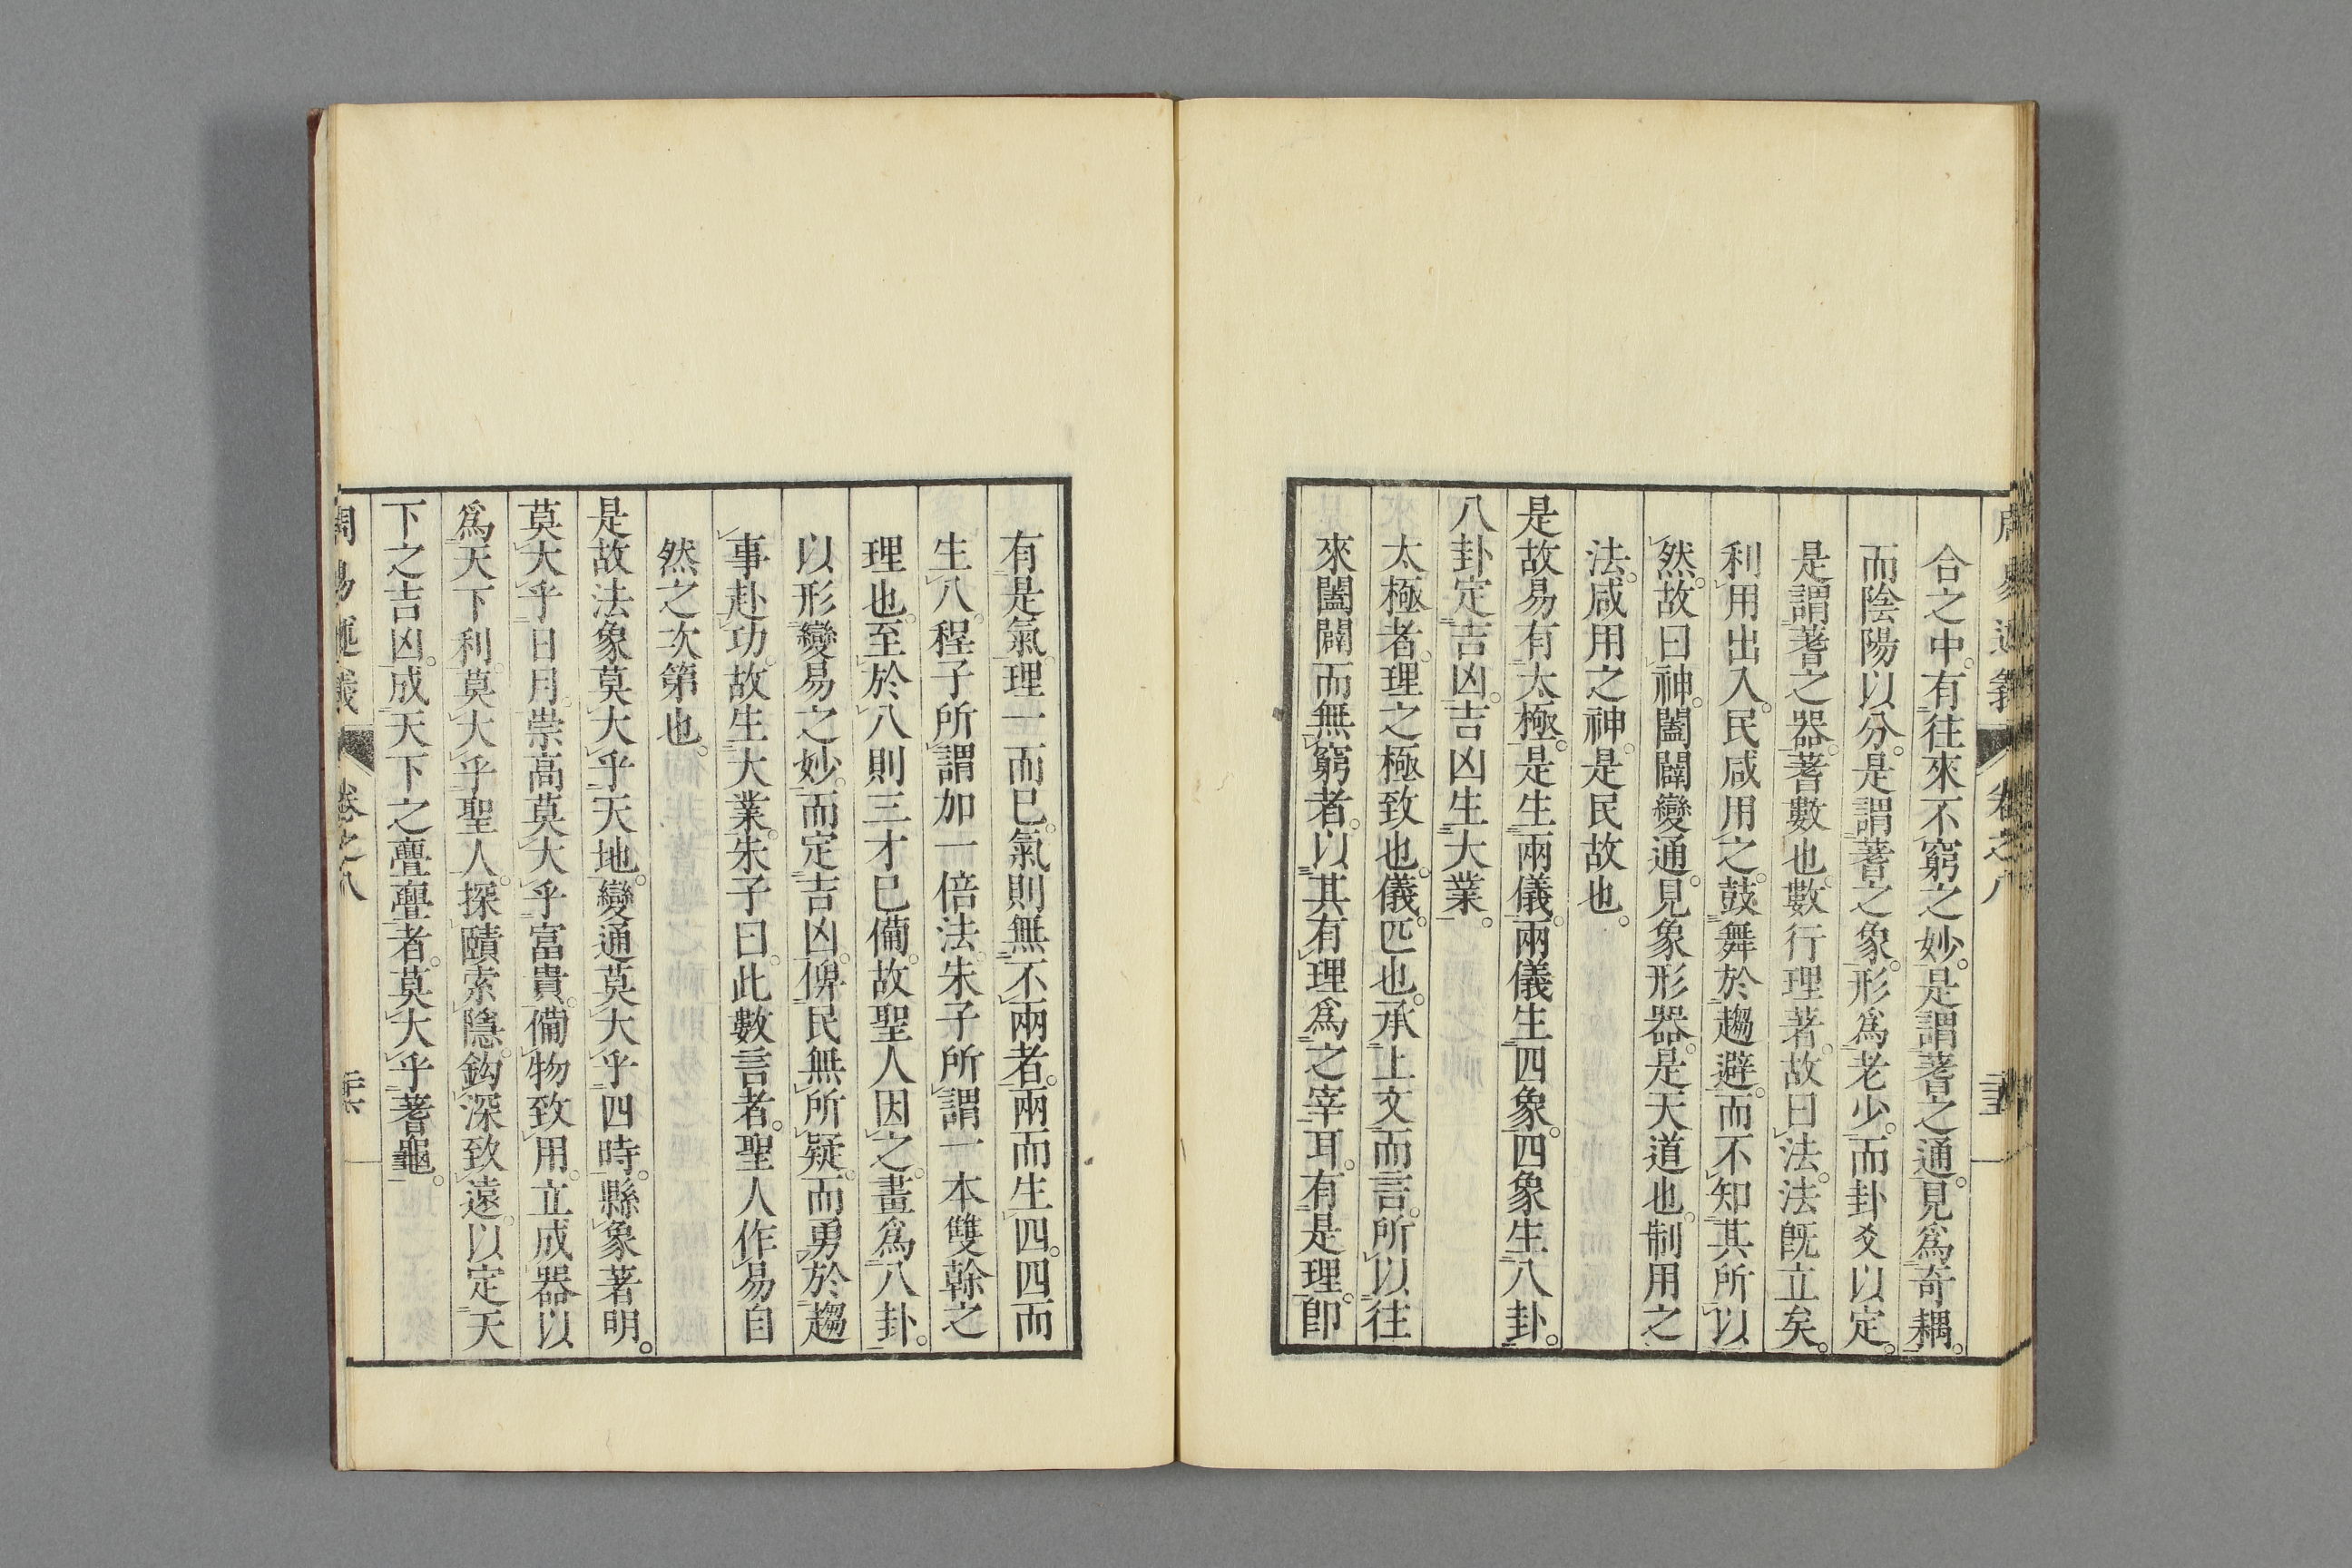 合之中。有往來不窮之妙。是謂蓍之通。見爲奇耦。
而陰陽以分。是謂蓍之象。形爲老少。而卦爻以定。
是謂蓍之器。蓍數也。數行理著。故曰法。法既立矣。
利用出入。民咸用之。鼓舞於趨避。而不知其所以
然。故曰神。闔闢變通。見象形器。是天道也。制用之
法。咸用之神。是民故也。
是故易有太極。是生兩儀。兩儀生四象。四象生八卦。
八卦定吉凶。吉凶生大業。
太極者。理之極致也。儀。匹也。承上文而言。所以往
來闔闢而無窮者。以其有理爲之宰耳。有是理。卽
有是氣。理一而已。氣則無不兩者。兩而生四。四而
生八。程子所謂加一倍法。朱子所謂一本雙幹之
理也。至於八則三才已備。故聖人因之。畫爲八卦。
以形變易之妙。而定吉凶。俾民無所疑。而勇於趨
事赴功。故生大業。朱子曰。此數言者。聖人作易自
然之次第也。
是故法象莫大乎天地。變通莫大乎四時。縣象著明。
莫大乎日月。崇高莫大乎富貴。備物致用。立成器以
爲天下利。莫大乎聖人。探賾索隱。鈎深致遠。以定天
下之吉凶。成天下之亹亹者。莫大乎蓍龜。
卷之八